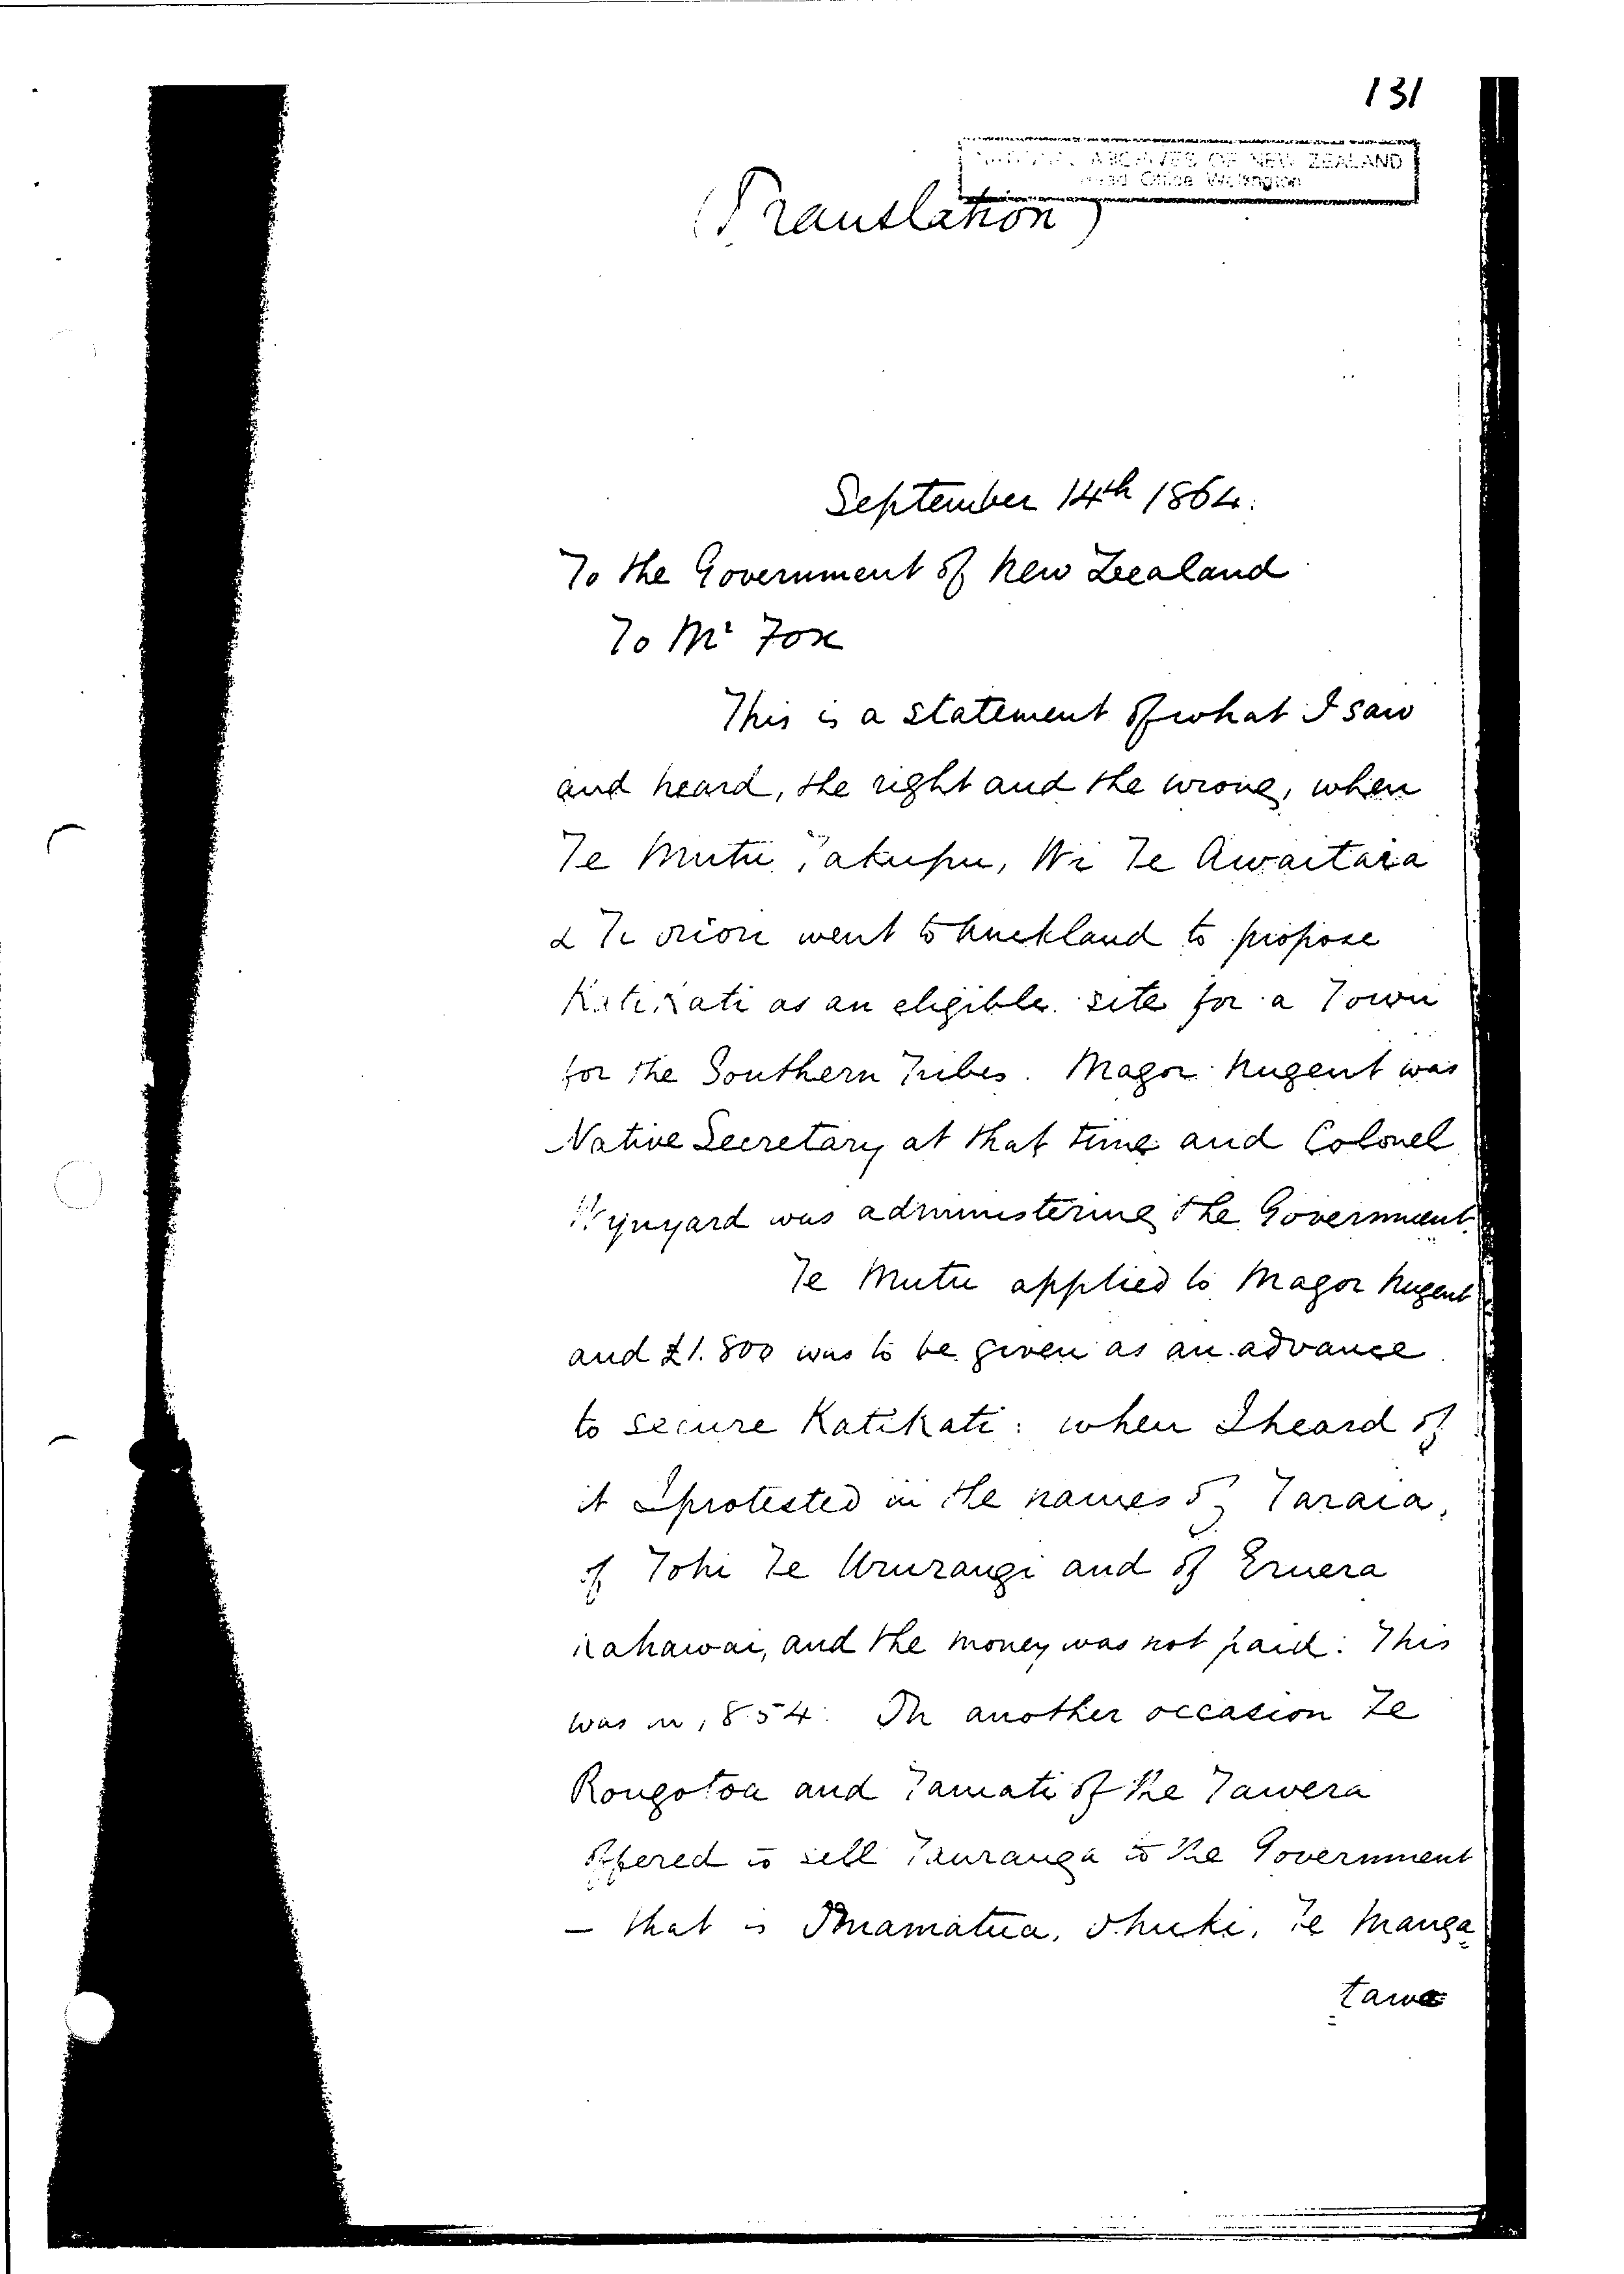 131
NATIONAL ARCHIVES OF NEW ZEALAND
Head Office Wellington
(Translation)
September 14th 1864.
To the Government of New Zealand
To Mr Fox
This is a statement of what I saw
and heard, the right and the wrong, when
Te Mutu Takupu, Wi Te Awaitaia
& Te oriori went to Auckland to propose
Katikati as an eligible site for a Town
for the Southern Tribes. Major Nugent was
Native Secretary at that time and Colonel
Wynyard was administering the Government.
Te Mutu applied to Major Nugent
and £1.800 was to be given as an advance
to secure Katikati: when I heard of
it I protested in the names of Taraia,
of Tohi Te Ururangi and of Eruera
Kahawai, and the money was not paid. This
was in 1854. On another occasion Te
Rongotoa and Tamati of the Tawera
offered to sell Tauranga to the Government
– that is Omamatua, Ohuki, Te Manga
tawa